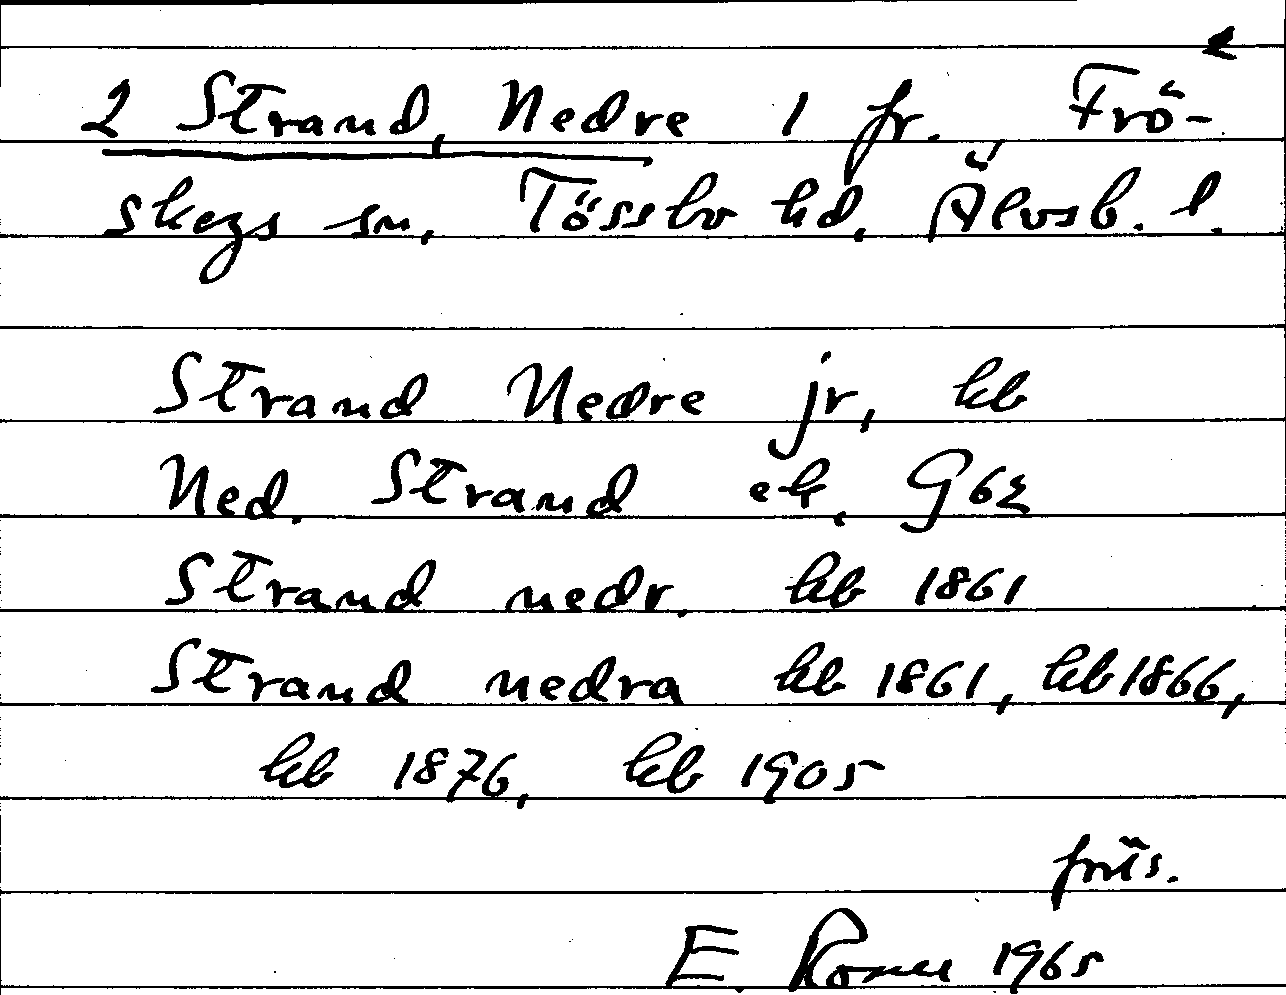 2 Strand, Nedre 1 fr. Frö-
skogs sn, Tössbo hd, Älvsb. l.
Strand Nedre jr, kb
Ned. Strand ek, G62
Strand nedr. kb 1861
Strand nedra kb 1861, kb 1866,
kb 1876, kb 1905
E. 1965